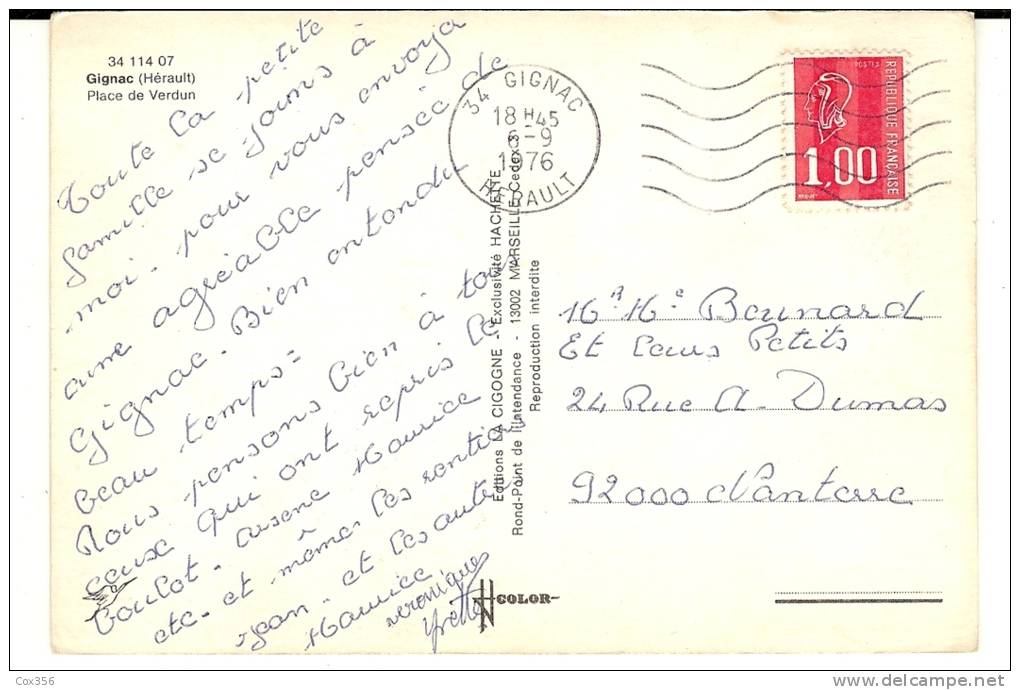 34 114 07
Gignac (Hérault)
Place de Verdun
Toute la petite
famille se joins à
moi - pour vous envoya
une agréable pensée de
Gignac - Bien entendu
beau temps =
Nous pensons bien à tous
ceux qui ont repris le
boulot - Arsene Maurice
etc - et même les rentiers
Jean - et les autres
Maurice
Véronique
Yvette
34 GIGNAC
18 H 45
-9
1976
HERAULT
POSTES
REPUBLIQUE FRANÇAISE
1,00
Editions LA CIGOGNE - Exclusivité HACHETTE
Rond-Point de l'Intendance - 13002 MARSEILLE Cedex 3
Reproduction interdite
Mr Me Beunard
Et leurs Petits
24 Rue A - Dumas
92000 Nanterre
COLOR
Cox356
delcampe.net